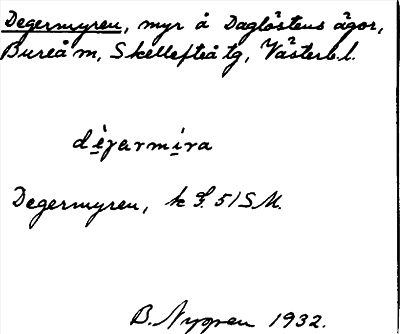 Degermyren, myr å Daglöstens ägor,
Bureå m, Skellefteå tg, Västerb. l.
dèɡ̣ermi̠ra
Degermyren, k S. 51 S M.
B. Nygren 1932.